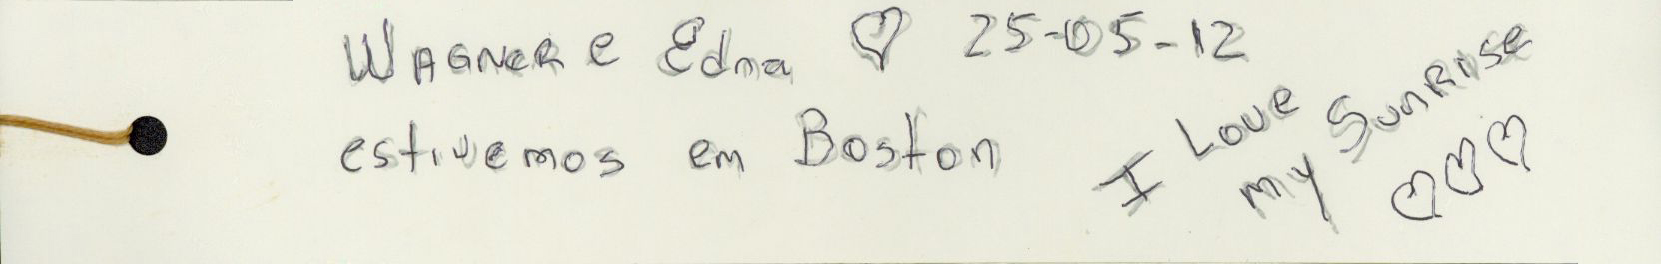 WAGNER e Edna ♡ 25-05-12
estivemos em Boston
I Love
my Sunrise
♡♡♡